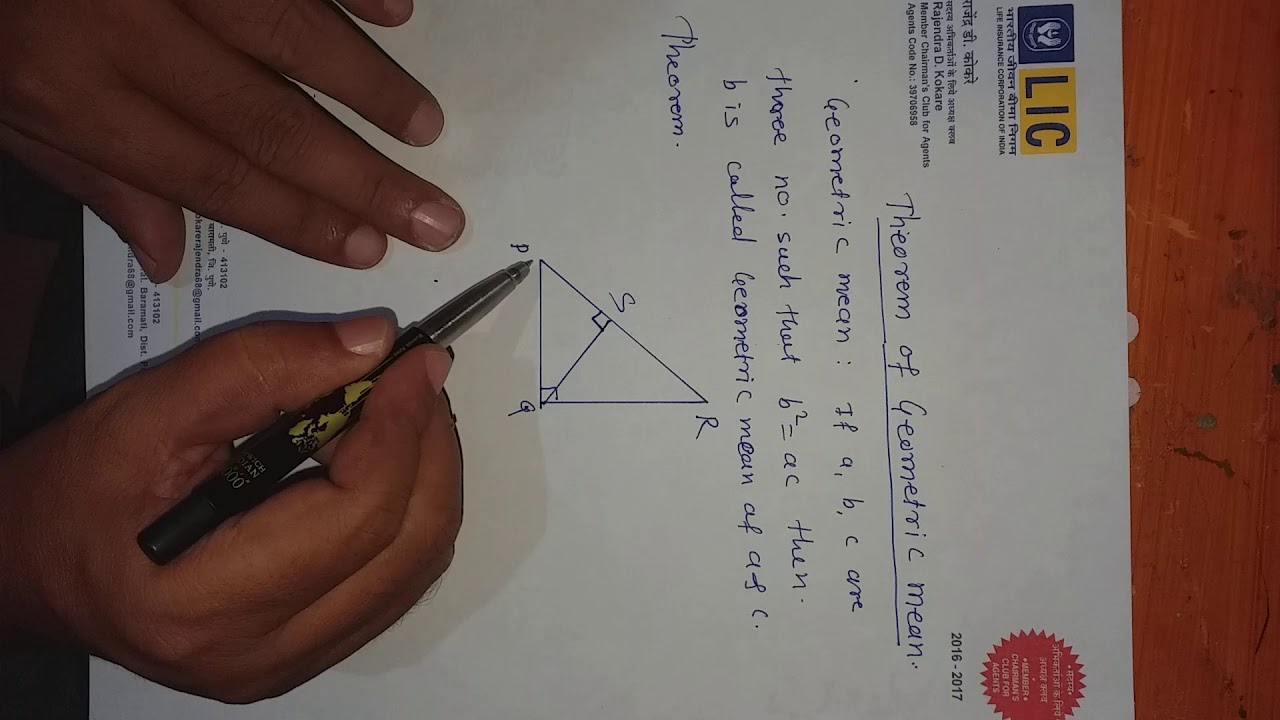 भारतीय जीवन बीमा निगम
LIFE INSURANCE CORPORATION OF INDIA
LIC
राजेंद्र डी. कोकरे
सदस्य अभिकर्ताओं के लिये अध्यक्ष क्लब
Rajendra D. Kokare
Member Chairman's Club for Agents
Agents Code No.: 39706958
2016 - 2017
सदस्य
अभिकर्ताओं के लिए
अध्यक्ष क्लब
•MEMBER•
CHAIRMAN'S
CLUB FOR
AGENTS
Theorem of Geometric mean.
Geometric mean : If a, b, c are
three no. such that b²= ac then.
b is called Geometric mean of a & c.
Theorem.
P
S
Q
R
पुणे - 413102
बारामती, जि. पुणे.
okarerajendra68@gmail.co
413102
al. Baramati, Dist. P
dra68@gmail.com